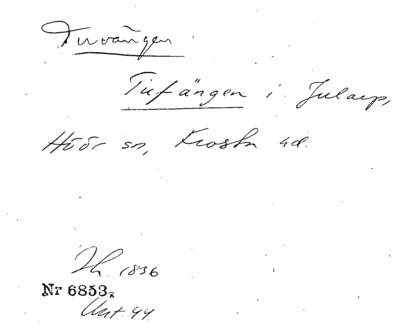 Tuvängen
Tufängen i Jularp,
Höör sn, Frosta hd.
Lh. 1836
Nr 6853.
Avt. 44